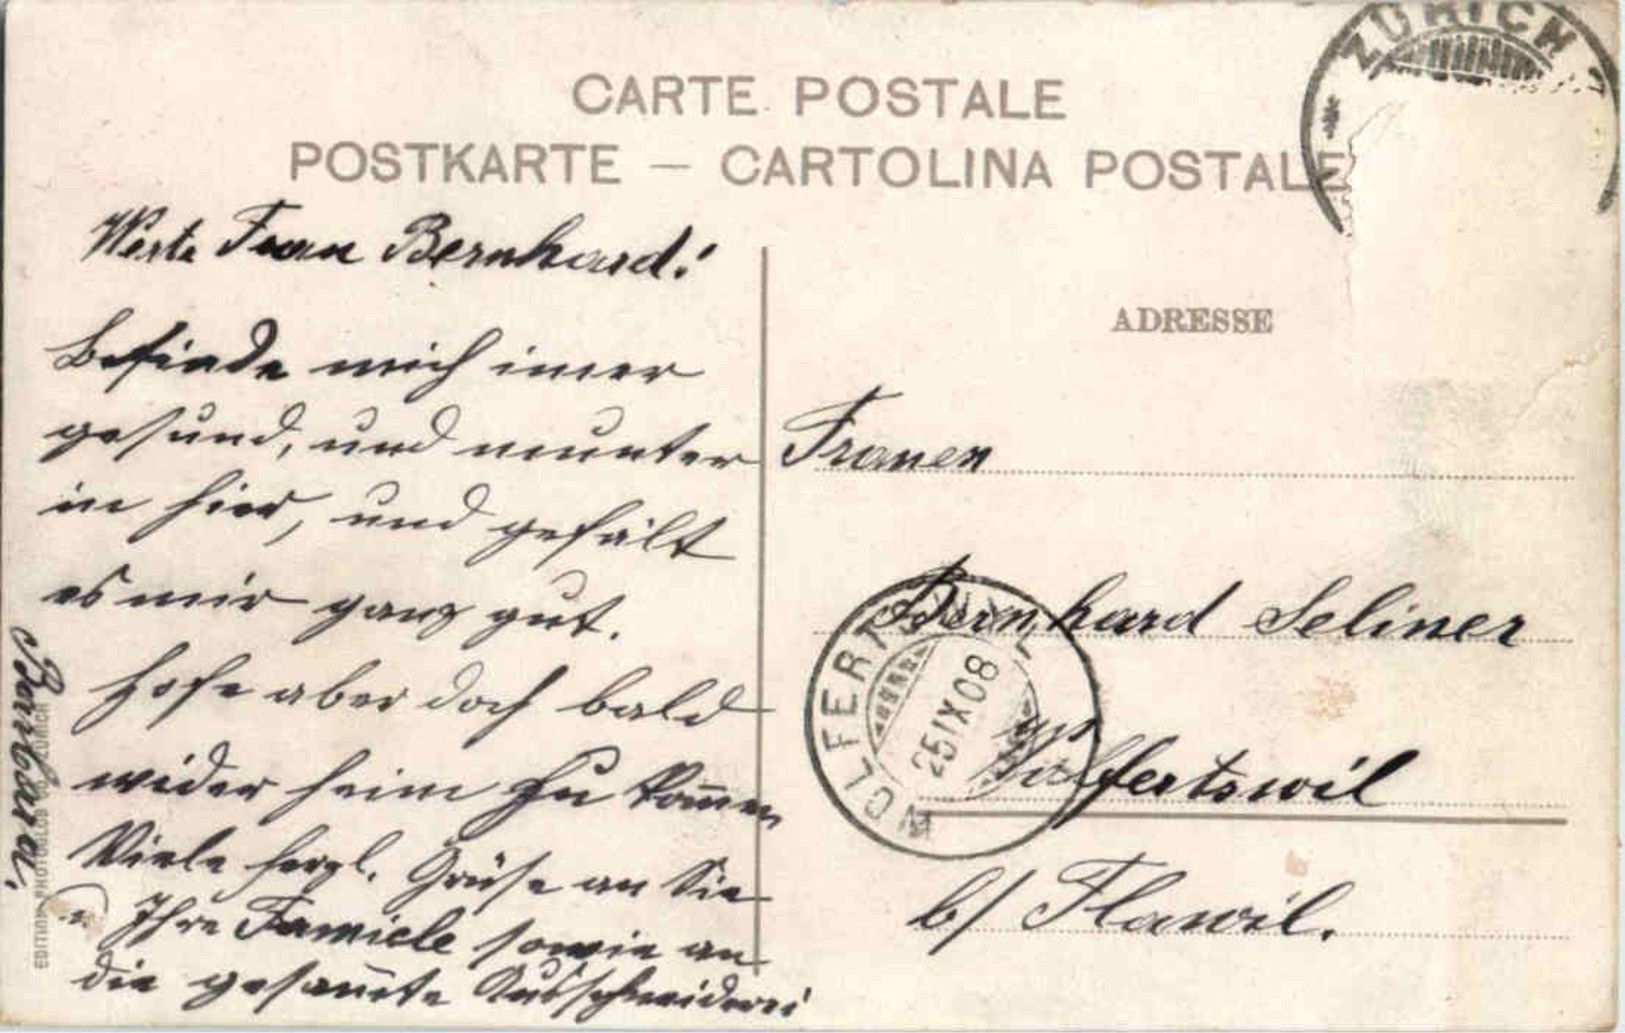 CARTE POSTALE
POSTKARTE — CARTOLINA POSTALE
ZÜRICH
Werte Frau Bernhard!
Befinde mich imer
gesund, und munter
in hier, und gefält
es mir ganz gut.
Hofe aber doch bald
wider heim zu kom̅en
Viele herzl. Grüse an Sie
u Ihre Familie sowie an
die gesam̅te
Barbara.
EDITION PHOTOGLOB CO ZÜRICH
ADRESSE
Frauen
Bernhard Seliner
Wolfertswil
b/ Flawil.
WOLFERTSWIL
25 IX 08